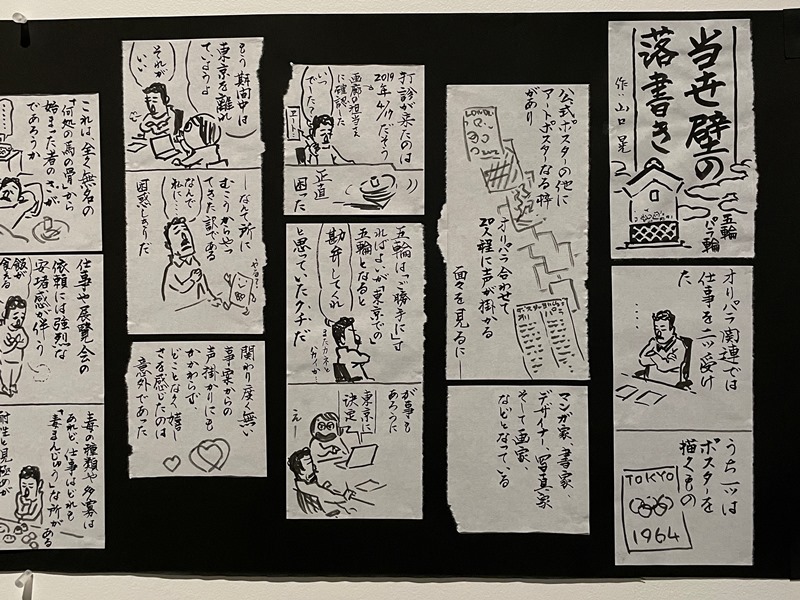 当世壁の
落書き
五輪
パラ輪
作・山口晃
オリパラ関連では
仕事を二ツ受け
た
うち一ツは
ポスターを
描くもの
TOKYO
1964
公式ポスターの他に
アートポスターなる枠
があり
オリパラ合わせて
20人程に声が掛かる
面々を見るに―
マンガ家、書家、
デザイナー、写真家
そして画家、
などとなっている
打診が来たのは
2019年4/17だそう
画廊の担当さん
に確認した
いつ
でしたっ?
正直
困った
五輪は「ご勝手に」す
ればよいが「東京での
五輪」となると
勘弁してくれ
と思っていたクチだ
またカネと
が事も
あろうに
東京に
決定て
えー
もう期間中は
東京を離れ
ていようよ
それが
いい
―なんて所に
むこうからやっ
てきた訳である
なんで
私に…
困惑しきりだ
やる?
関わり度く無い
事・家からの
声掛かりにも
かかわらず、
どことなく嬉し
さを感じたのは
意外であった
これは、全く無名の
「何処の馬の骨」から
始まった者のさが
であろうか
仕事や展覧会の
依頼には強烈な
安堵感が伴う
飯が
食える
毒の種類や多寡は
あれど、仕事はどれも
「毒まんじゅう」な所がある
耐性と見極めが